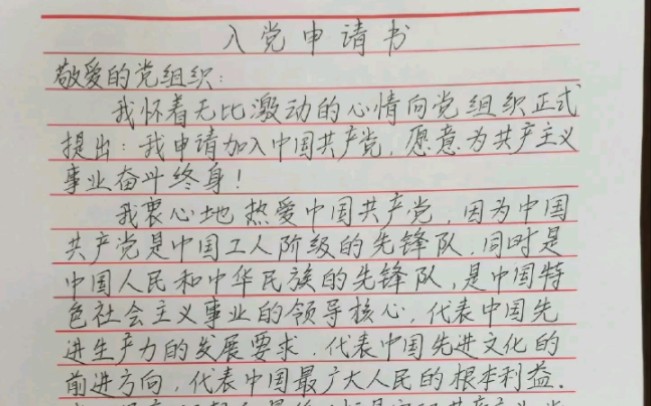 入党申请书
敬爱的党组织：
我怀着无比激动的心情向党组织正式
提出：我申请加入中国共产党，愿意为共产主义
事业奋斗终身！
我衷心地热爱中国共产党，因为中国
共产党是中国工人阶级的先锋队，同时是
中国人民和中华民族的先锋队，是中国特
色社会主义事业的领导核心，代表中国先
进生产力的发展要求，代表中国先进文化的
前进方向，代表中国最广大人民的根本利益。